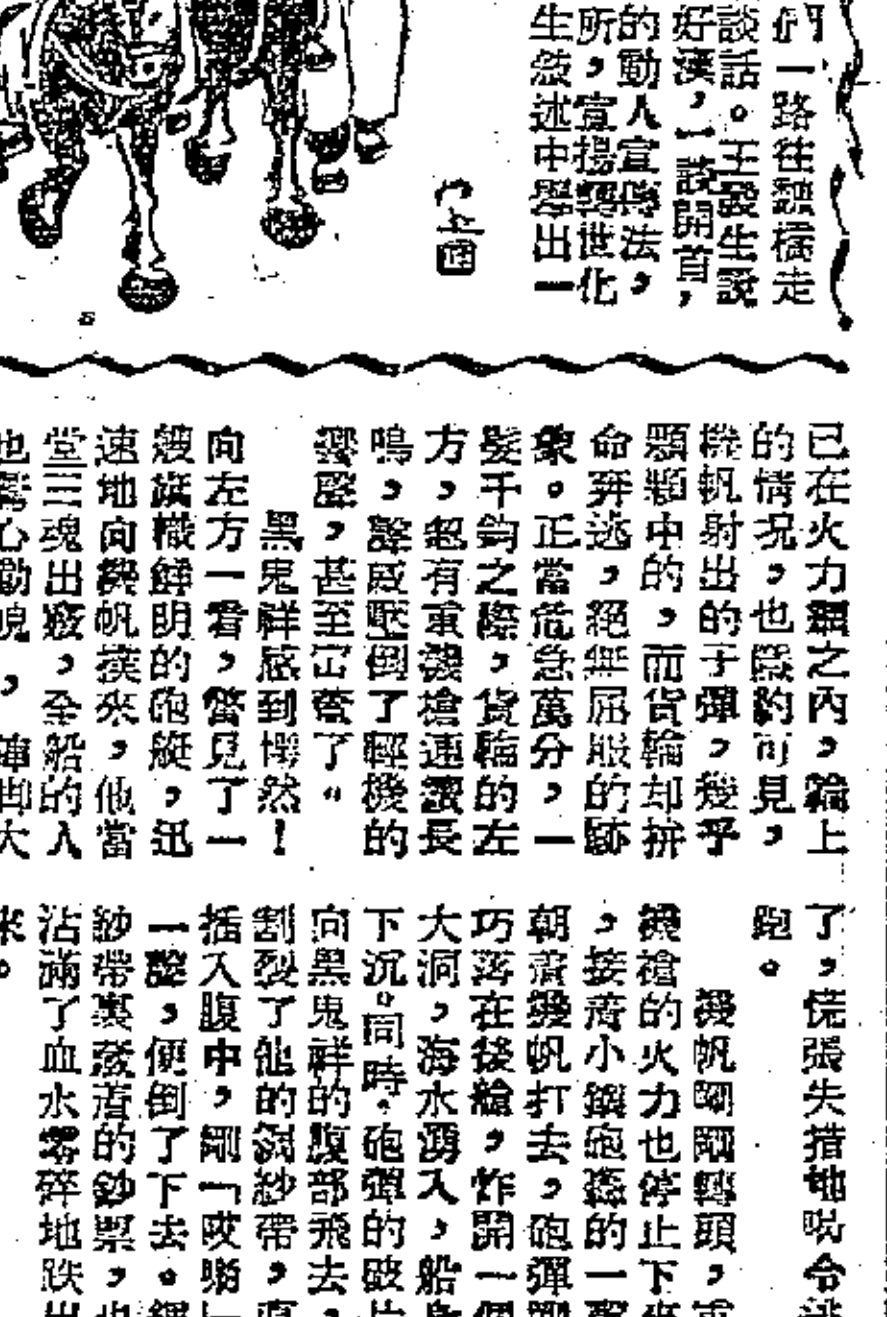 們一路往魏橋走
談話。王發生說
好漢，一說開首，
的動人宣傳法，
所，宣揚轉世化
生敘述中舉出一
已在火力網之內，輪上
的情況，也隱約可見，
機帆射出的子彈，幾乎
顆顆中的，而貨輪却拼
命奔逃，絕無屈服的跡
象。正當危急萬分，一
髮千鈞之際，貨輪的左
方，忽有重機槍連續長
鳴，聲威壓倒了輕機的
響聲，甚至
黑鬼祥感到愕然！
向左方一看，當見了一
艘旗幟鮮明的砲艇，迅
速地向機帆撲來，他當
堂三魂出竅，全船的人
也驚心動魄，
了，慌張失措地吩令逃
跑。
機帆剛剛轉頭，重
機槍的火力也停止下來
，接着小鋼砲轟的一聲
朝着機帆打去，砲彈剛
巧落在後艙，炸開一個
大洞，海水湧入，船身
下沉。同時，砲彈的破片
向黑鬼祥的腹部飛去，
割裂了他的綑紗帶，直
插入腹中，剛「哎喲」
一聲，便倒了下去。綑
紗帶裏藏着的鈔票，也
沾滿了血水零碎地跌出
來。